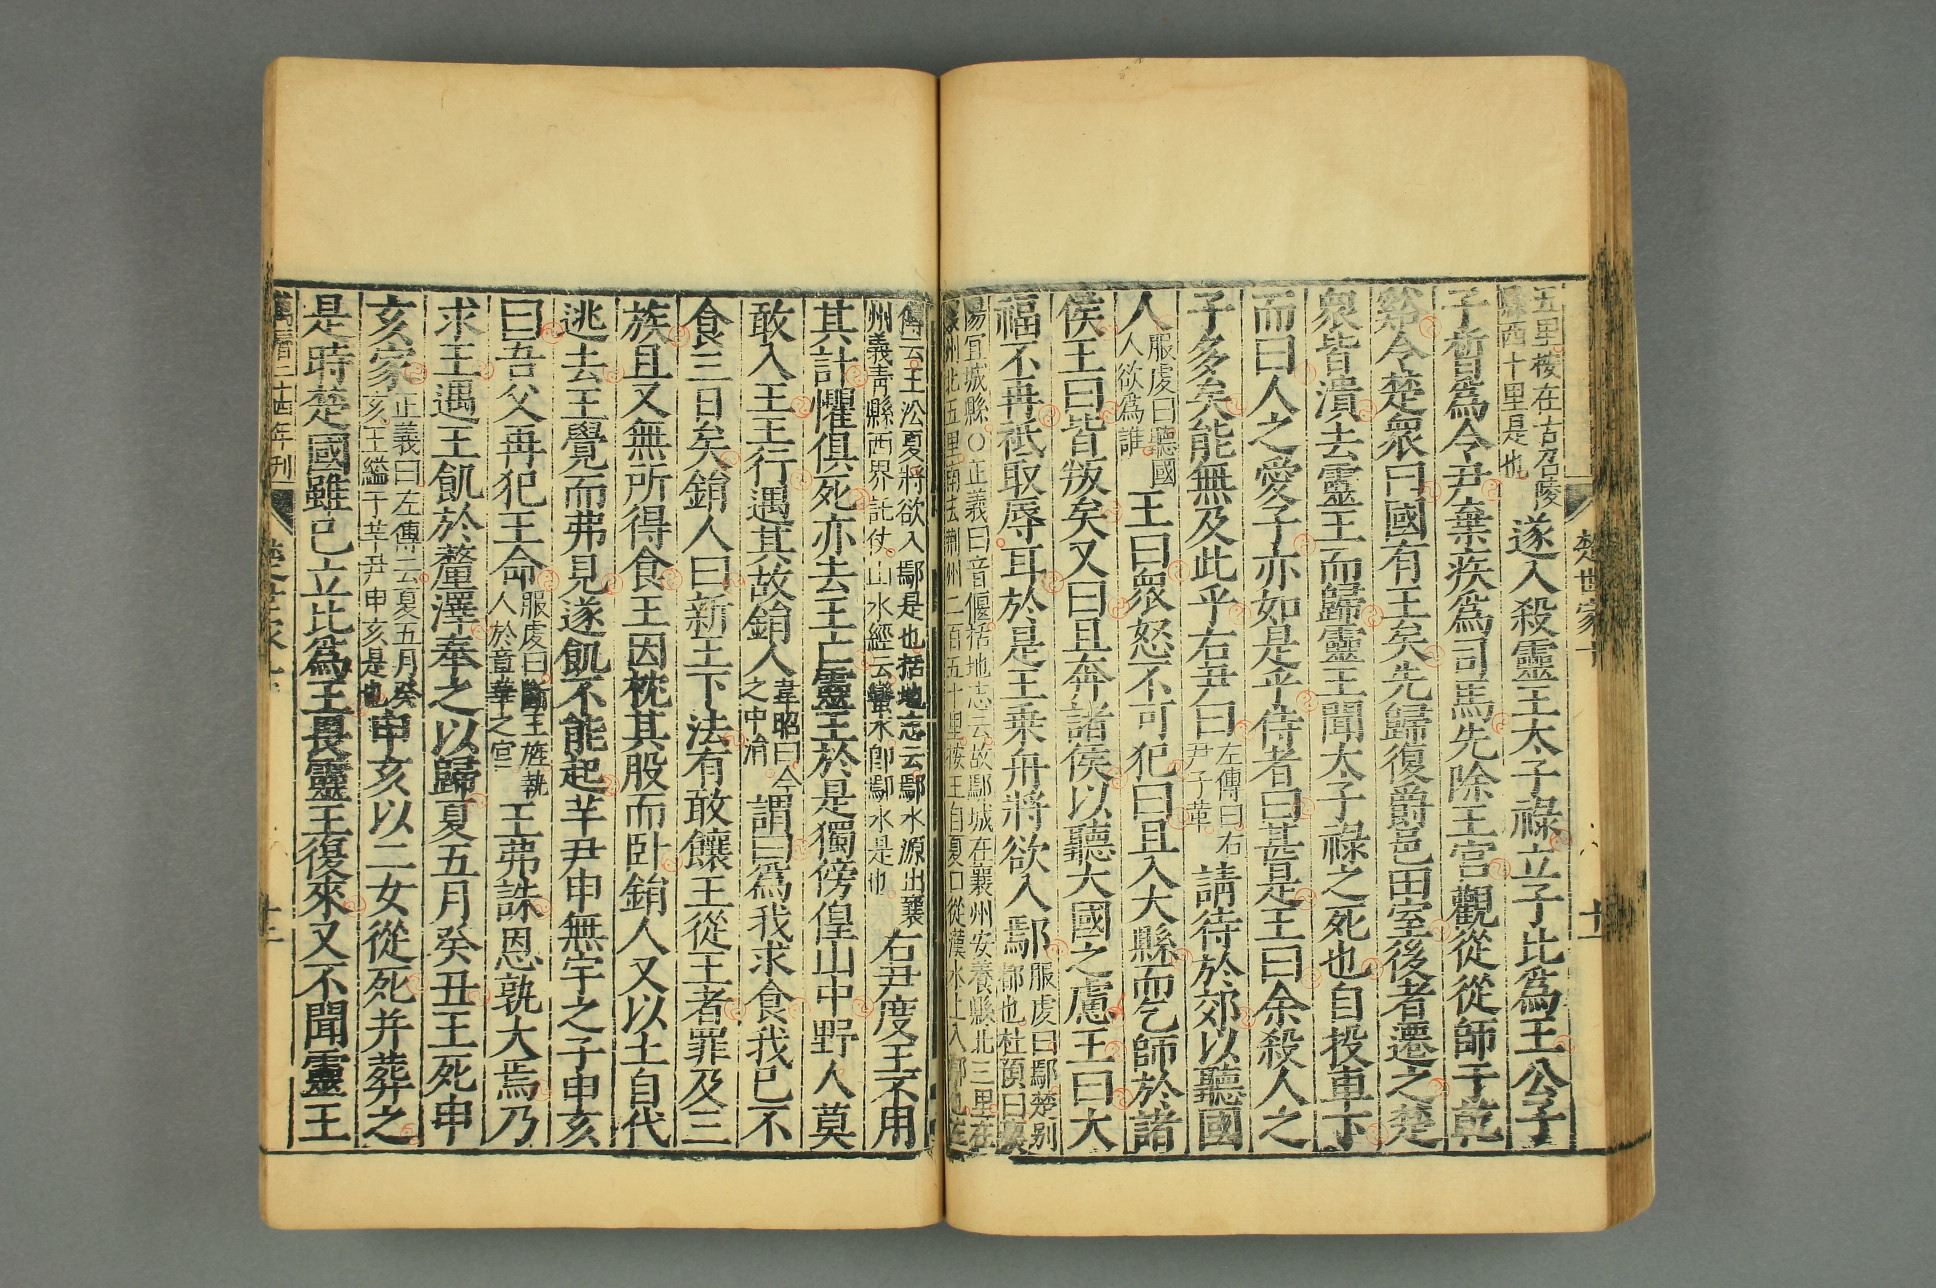 楚世家十
十一
五里按在古召陵
縣西十里是也
遂入殺靈王太子祿立子比為王公子
子晳為令尹棄疾為司馬先除王宮觀從從師于乾
谿令楚衆曰國有王矣先歸復爵邑田室後者遷之楚
衆皆潰去靈王而歸靈王聞太子祿之死也自投車下
而曰人之愛子亦如是乎侍者曰甚是王曰余殺人之
子多矣能無及此乎右尹曰
左傳曰右
尹子革
請待於郊以聽國
人
服虔曰聽國
人欲為誰
王曰衆怒不可犯曰且入大縣而乞師於諸
侯王曰皆叛矣又曰且奔諸侯以聽大國之慮王曰大
福不再祗取辱耳於是王乘舟將欲入鄢
服虔曰鄢楚别
都也杜預曰襄
陽宜城縣○正義曰音偃括地志云故鄢城在襄州安養縣北三里在
州北五里南去荆州二百五十里按王自夏口從漢水上入鄢也左
傳云王沿夏將欲入鄢是也括地志云鄢水源出襄
州義清縣西界託仗山水經云蠻水卽鄢水是也
右尹度王不用
其計懼俱死亦去王亡靈王於是獨傍偟山中野人莫
敢入王王行遇其故鋗人
韋昭曰今
之中涓
謂曰為我求食我已不
食三日矣鋗人曰新王下法有敢饟王從王者罪及三
族且又無所得食王因枕其股而卧鋗人又以土自代
逃去王覺而弗見遂飢不能起芋尹申無宇之子申亥
曰吾父再犯王命
服虔曰斷王旌執
人於章華之宮
王弗誅恩孰大焉乃
求王遇王飢於釐澤奉之以歸夏五月癸丑王死申
亥家
正義曰左傳云夏五月癸
亥王縊于芋尹申亥是也
申亥以二女從死并葬之
是時楚國雖已立比為王畏靈王復來又不聞靈王
萬曆二十四年刊
楚世家十
十二